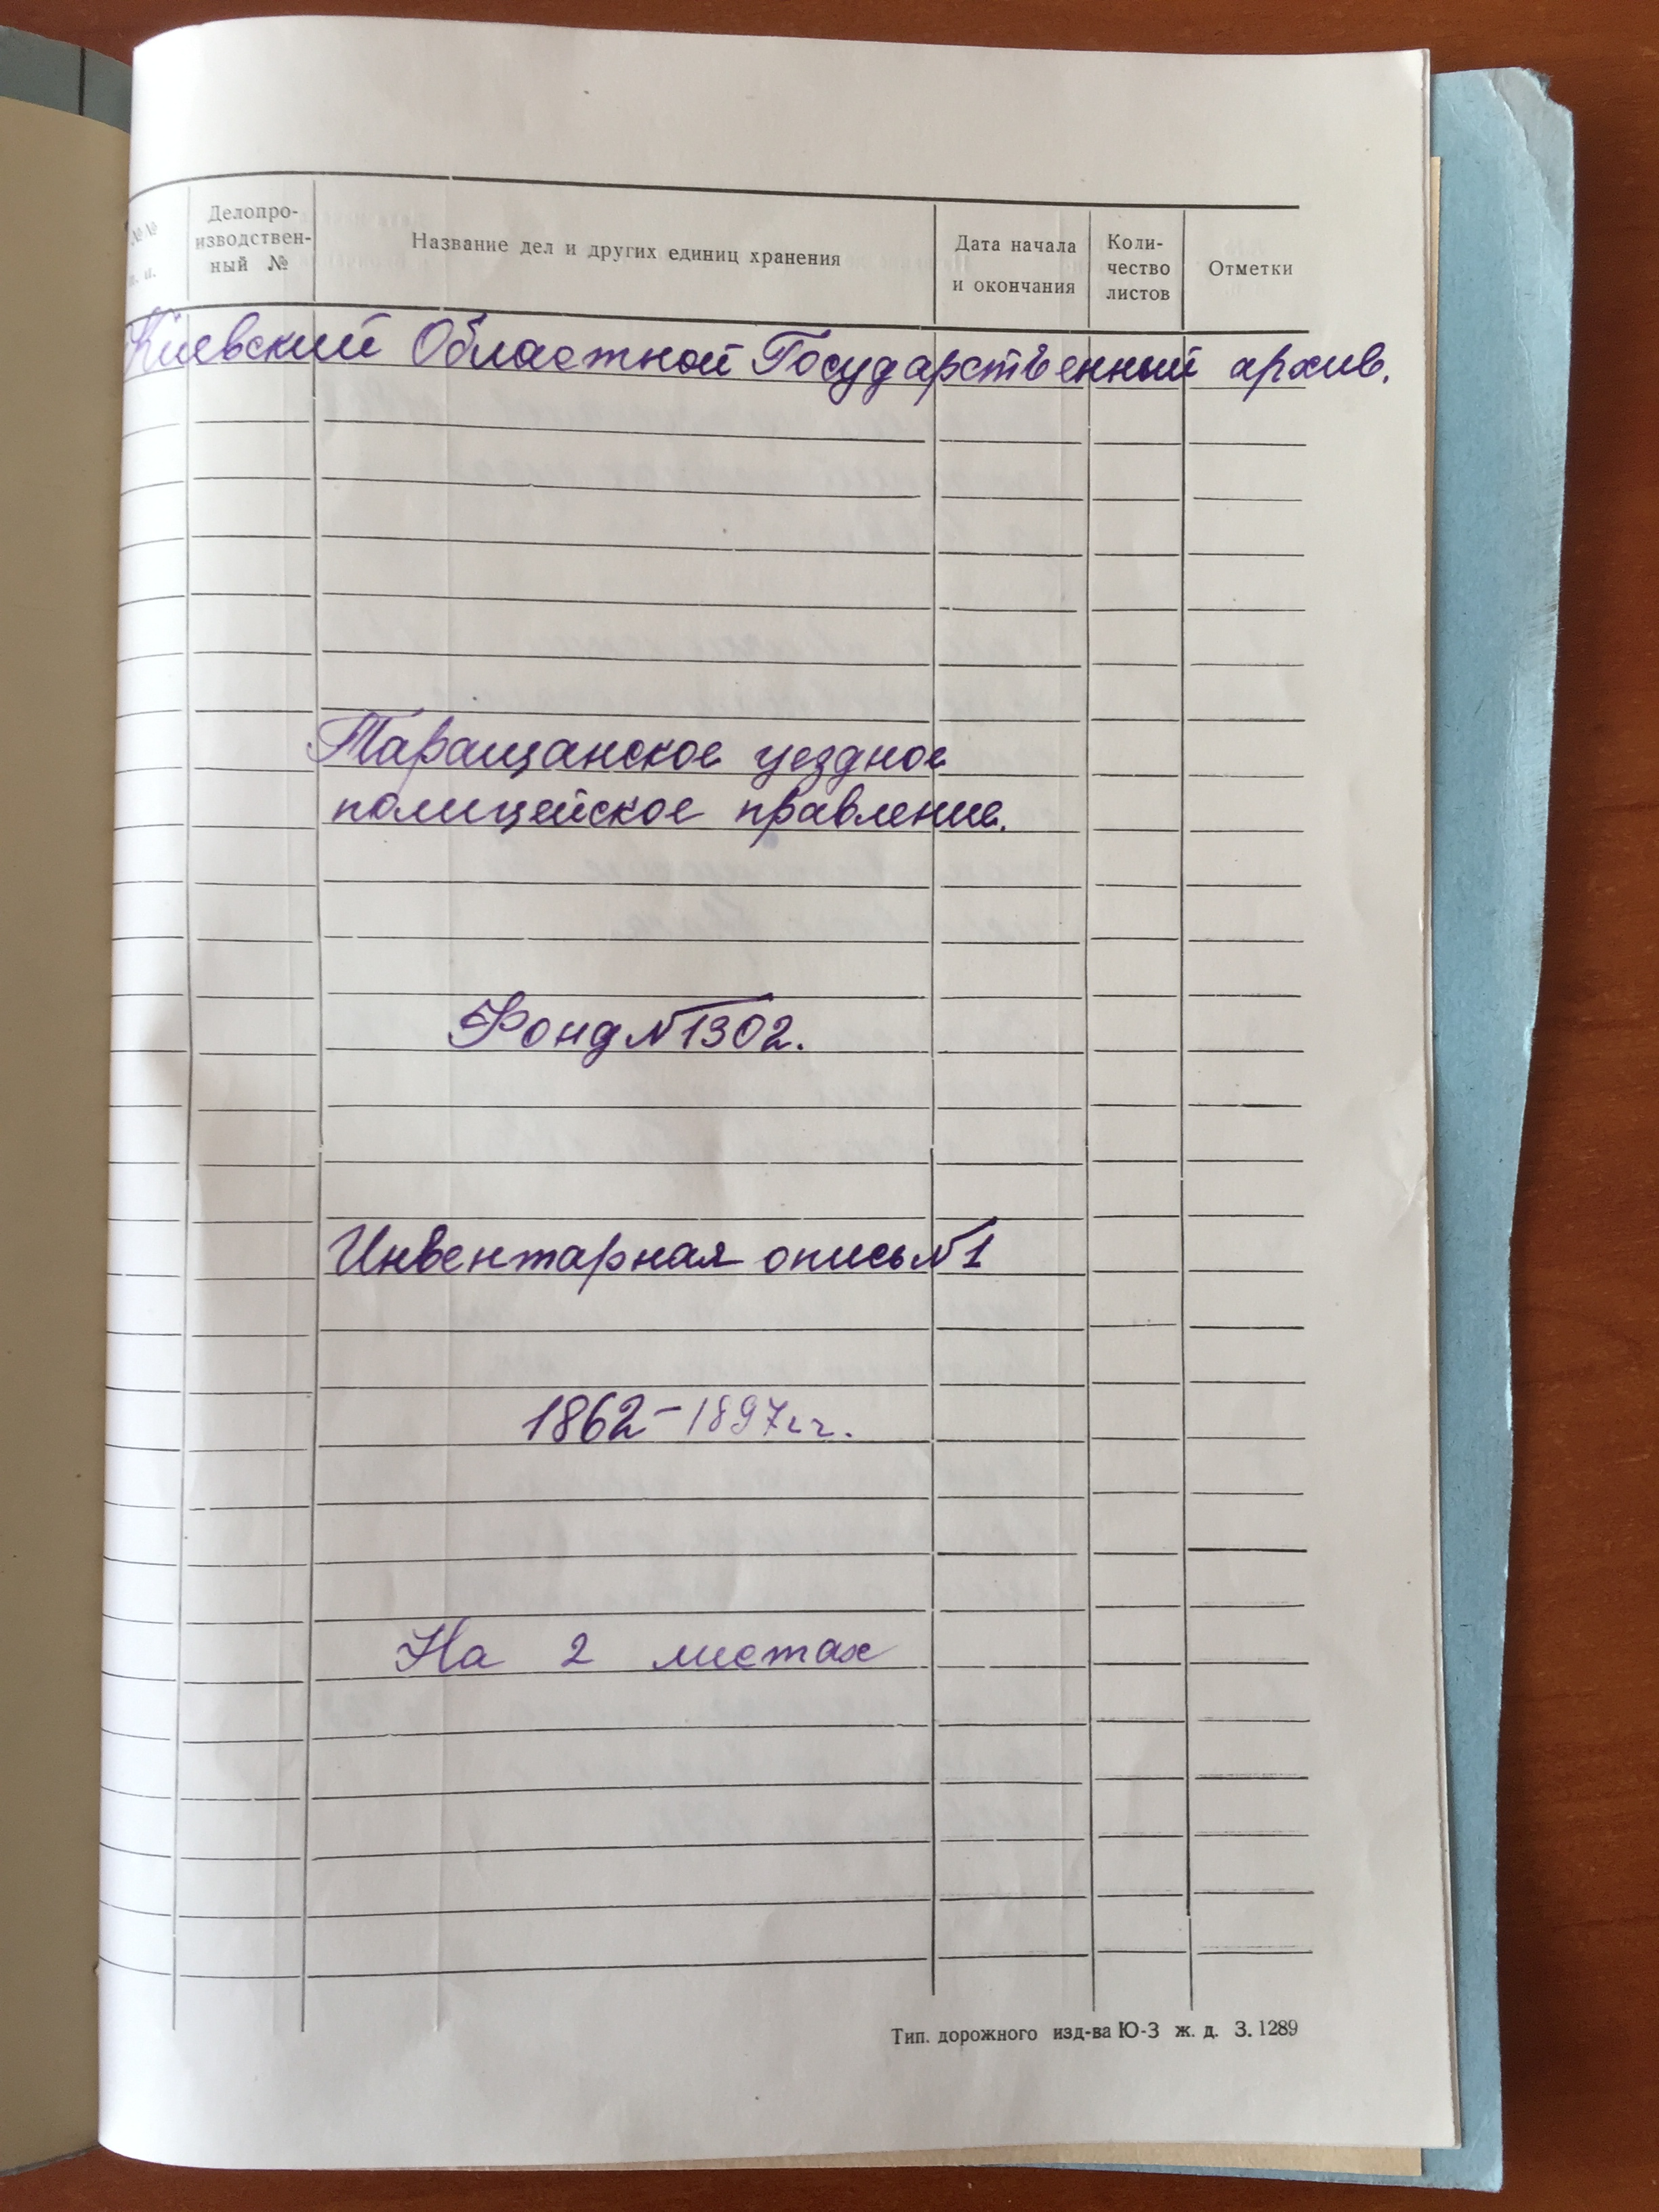 №№
п. п.
Делопро-
изводствен-
ный №
Название дел и других единиц хранения
Дата начала
и окончания
Коли-
чество
листов
Отметки
Киевский Областной Государственный архив.
Таращанское уездное
полицейское правление.
Фонд №1302.
Инвентарная опись №1
1862-1897гг.
На 2 листах
Тип. дорожного изд-ва Ю-З ж. д. З. 1289